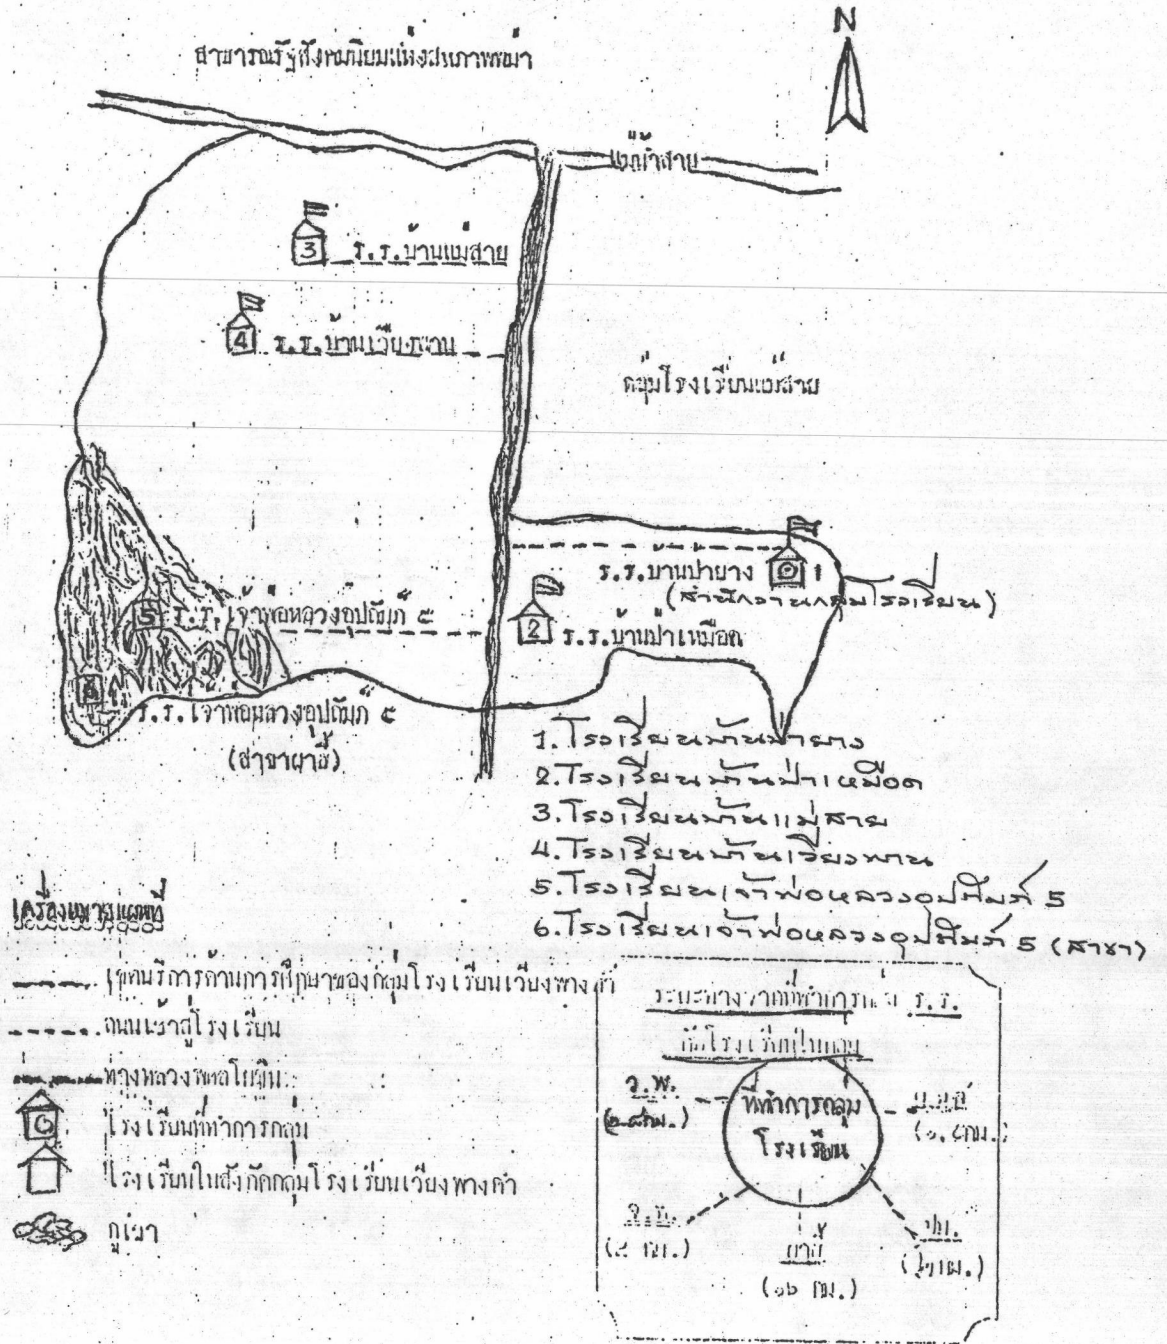 N
สาธารณรัฐสังคมนิยมแห่งสหภาพพม่า
แม่น้ำสาย
3 ร.ร.บ้านแม่สาย
4 ร.ร.บ้านเวียงพาน
กลุ่มโรงเรียนแม่สาย
ร.ร.บ้านป่ายาง 1
(สำนักงานกลุ่มโรงเรียน)
5 ร.ร.เจ้าพ่อหลวงอุปถัมภ์ ๕
2 ร.ร.บ้านป่าเหมือด
6
ร.ร.เจ้าพ่อหลวงอุปถัมภ์ ๕
(สาขาผาฮี้)
1.โรงเรียนบ้านป่ายาง
2.โรงเรียนบ้านป่าเหมือด
3.โรงเรียนบ้านแม่สาย
4.โรงเรียนบ้านเวียงพาน
5.โรงเรียนเจ้าพ่อหลวงอุปถัมภ์ 5
6.โรงเรียนเจ้าพ่อหลวงอุปถัมภ์ 5 (สาขา)
เครื่องหมายแผนที่
เขตบริการด้านการศึกษาของกลุ่มโรงเรียนเวียงพางคำ
ถนนเข้าสู่โรงเรียน
ทางหลวงพหลโยธิน
โรงเรียนที่ทำการกลุ่ม
โรงเรียนในสังกัดกลุ่มโรงเรียนเวียงพางคำ
ภูเขา
ระยะทางจากที่ทำการกลุ่ม ร.ร.
ถึงโรงเรียนในกลุ่ม
ว.พ.
ที่ทำการกลุ่ม
โรงเรียน
ผาฮี้
(๑๖ กม.)
ปม.